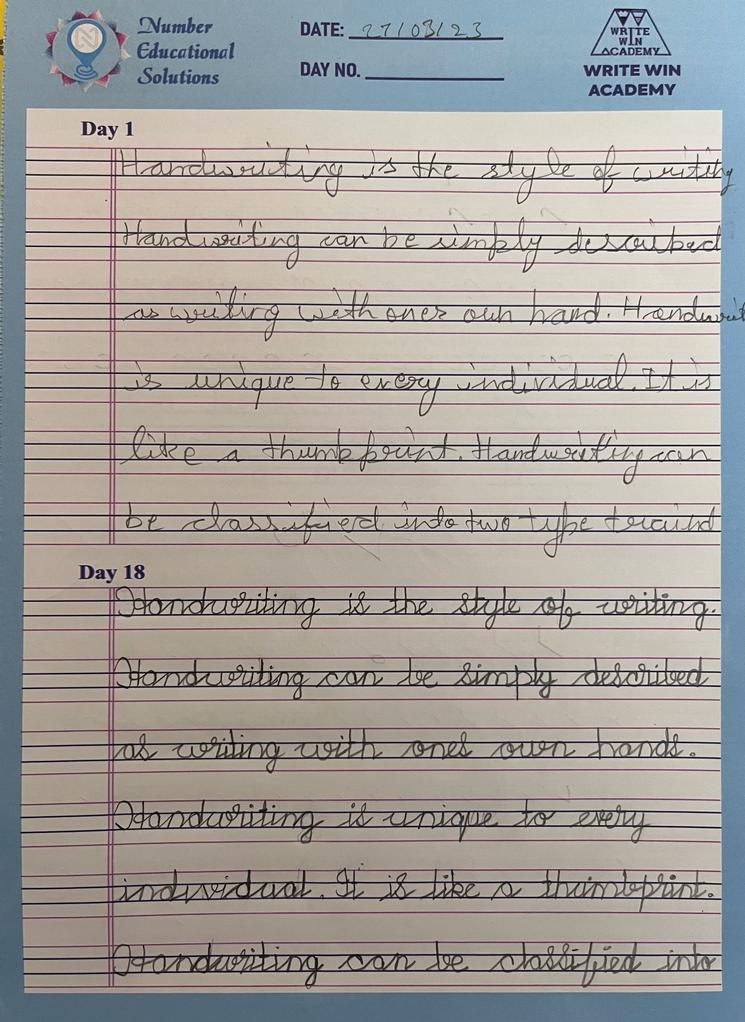 Number
Educational
Solutions
DATE: 27/03/23
DAY NO.
WRITE
WIN
ACADEMY
WRITE WIN
ACADEMY
Day 1
Handwriting is the style of writing
Handwriting can be simply described
as writing with ones own hand. Handwrit
is unique to every individual. It is
like a thumbprint. Handwriting can
be classified into two type
Day 18
Handwriting is the style of writing.
Handwriting can be simply described
as writing with ones own hands.
Handwriting is unique to every
individual. It is like a thumbprint.
Handwriting can be classified into